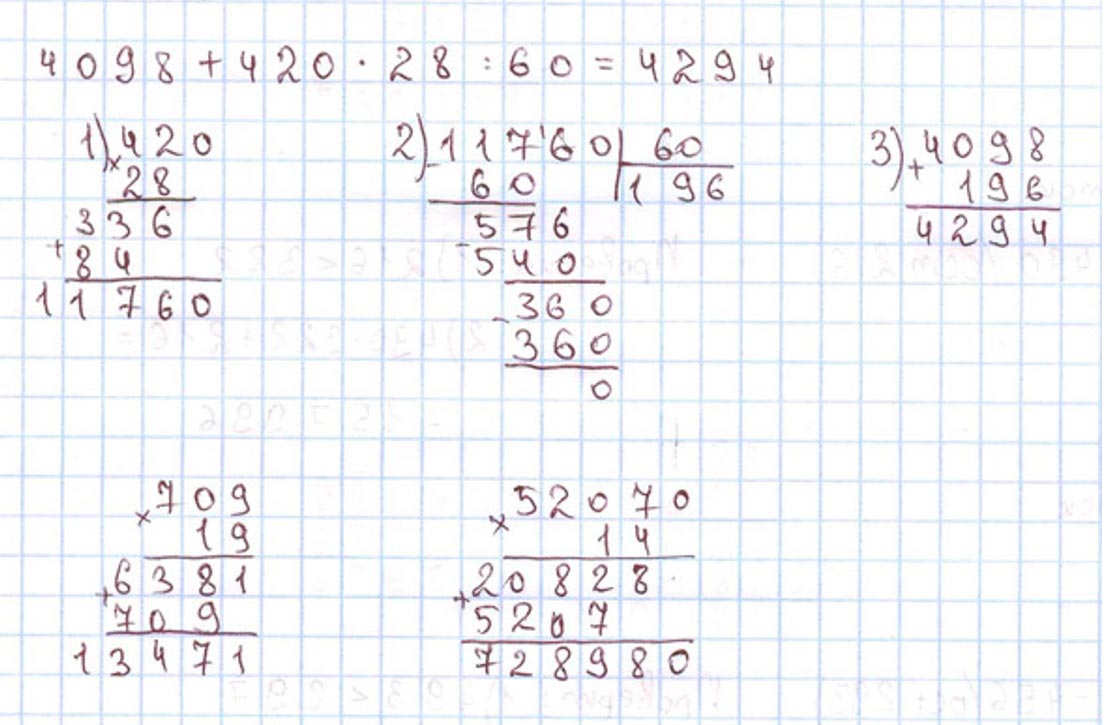 4098 + 420 · 28 : 60 = 4294
1) 420
× 28
336
+ 84
11760
2) 11760 | 60
- 60 | 196
576
- 540
360
- 360
0
3) 4098
+ 196
4294
709
× 19
6381
+ 709
13471
52070
× 14
20828
+ 5207
728980